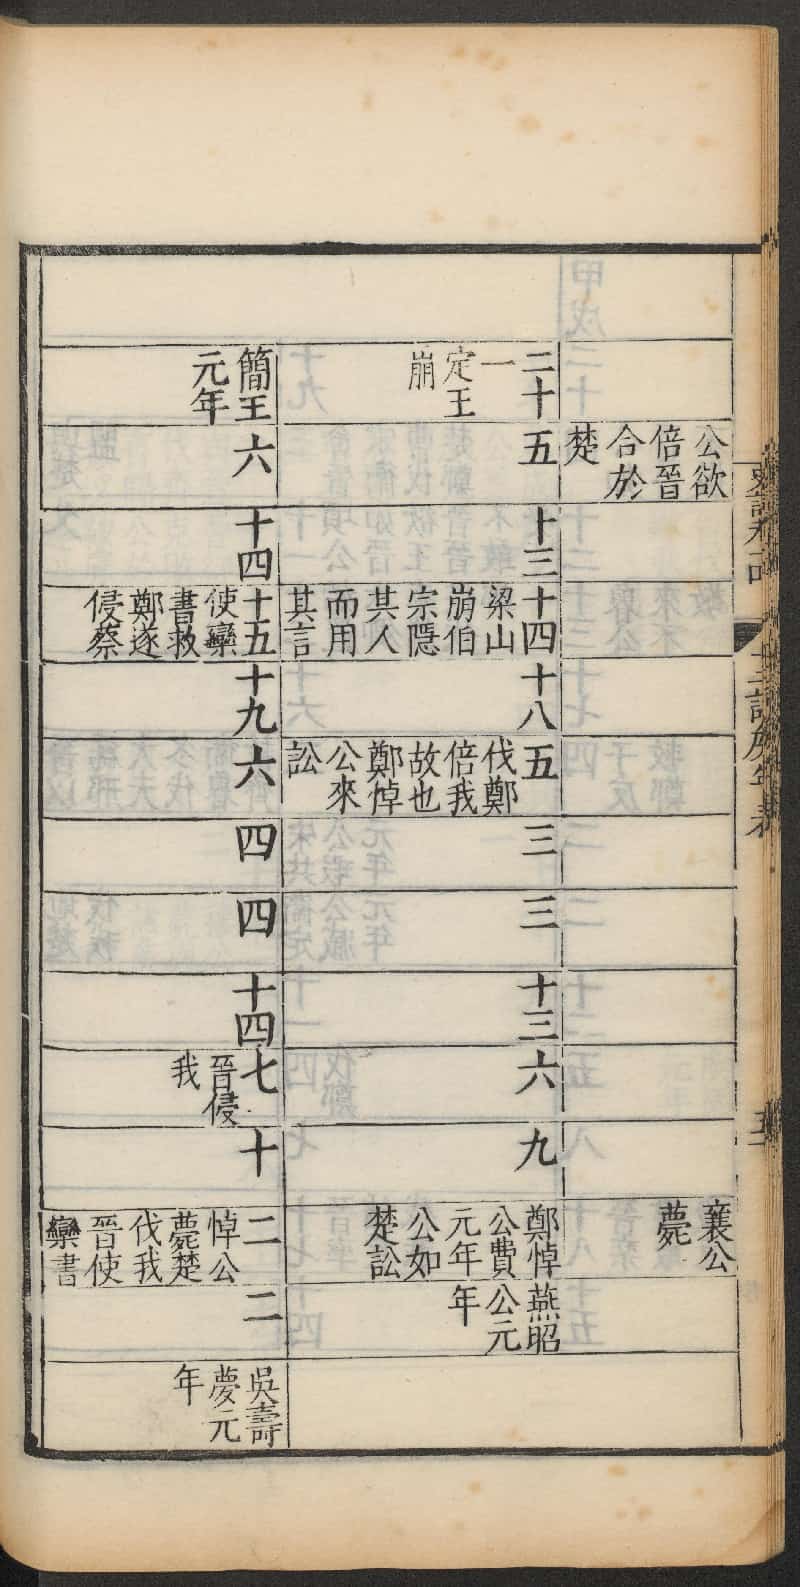 史記卷十四
十二諸侯年表
公欲
倍晉
合於
楚
襄公
薨
二十
一
定王
崩
五
十三
十四
梁山
崩伯
宗隱
其人
而用
其言
十八
五
伐鄭
倍我
故也
鄭悼
公來
訟
三
三
十三
六
九
鄭悼
公費
元年
公如
楚訟
燕昭
公元
年
簡王
元年
六
十四
十五
使欒
書救
鄭遂
侵蔡
十九
六
四
四
十四
七
晉侵
我
十
二
悼公
薨楚
伐我
晉使
欒書
二
吳壽
夢元
年